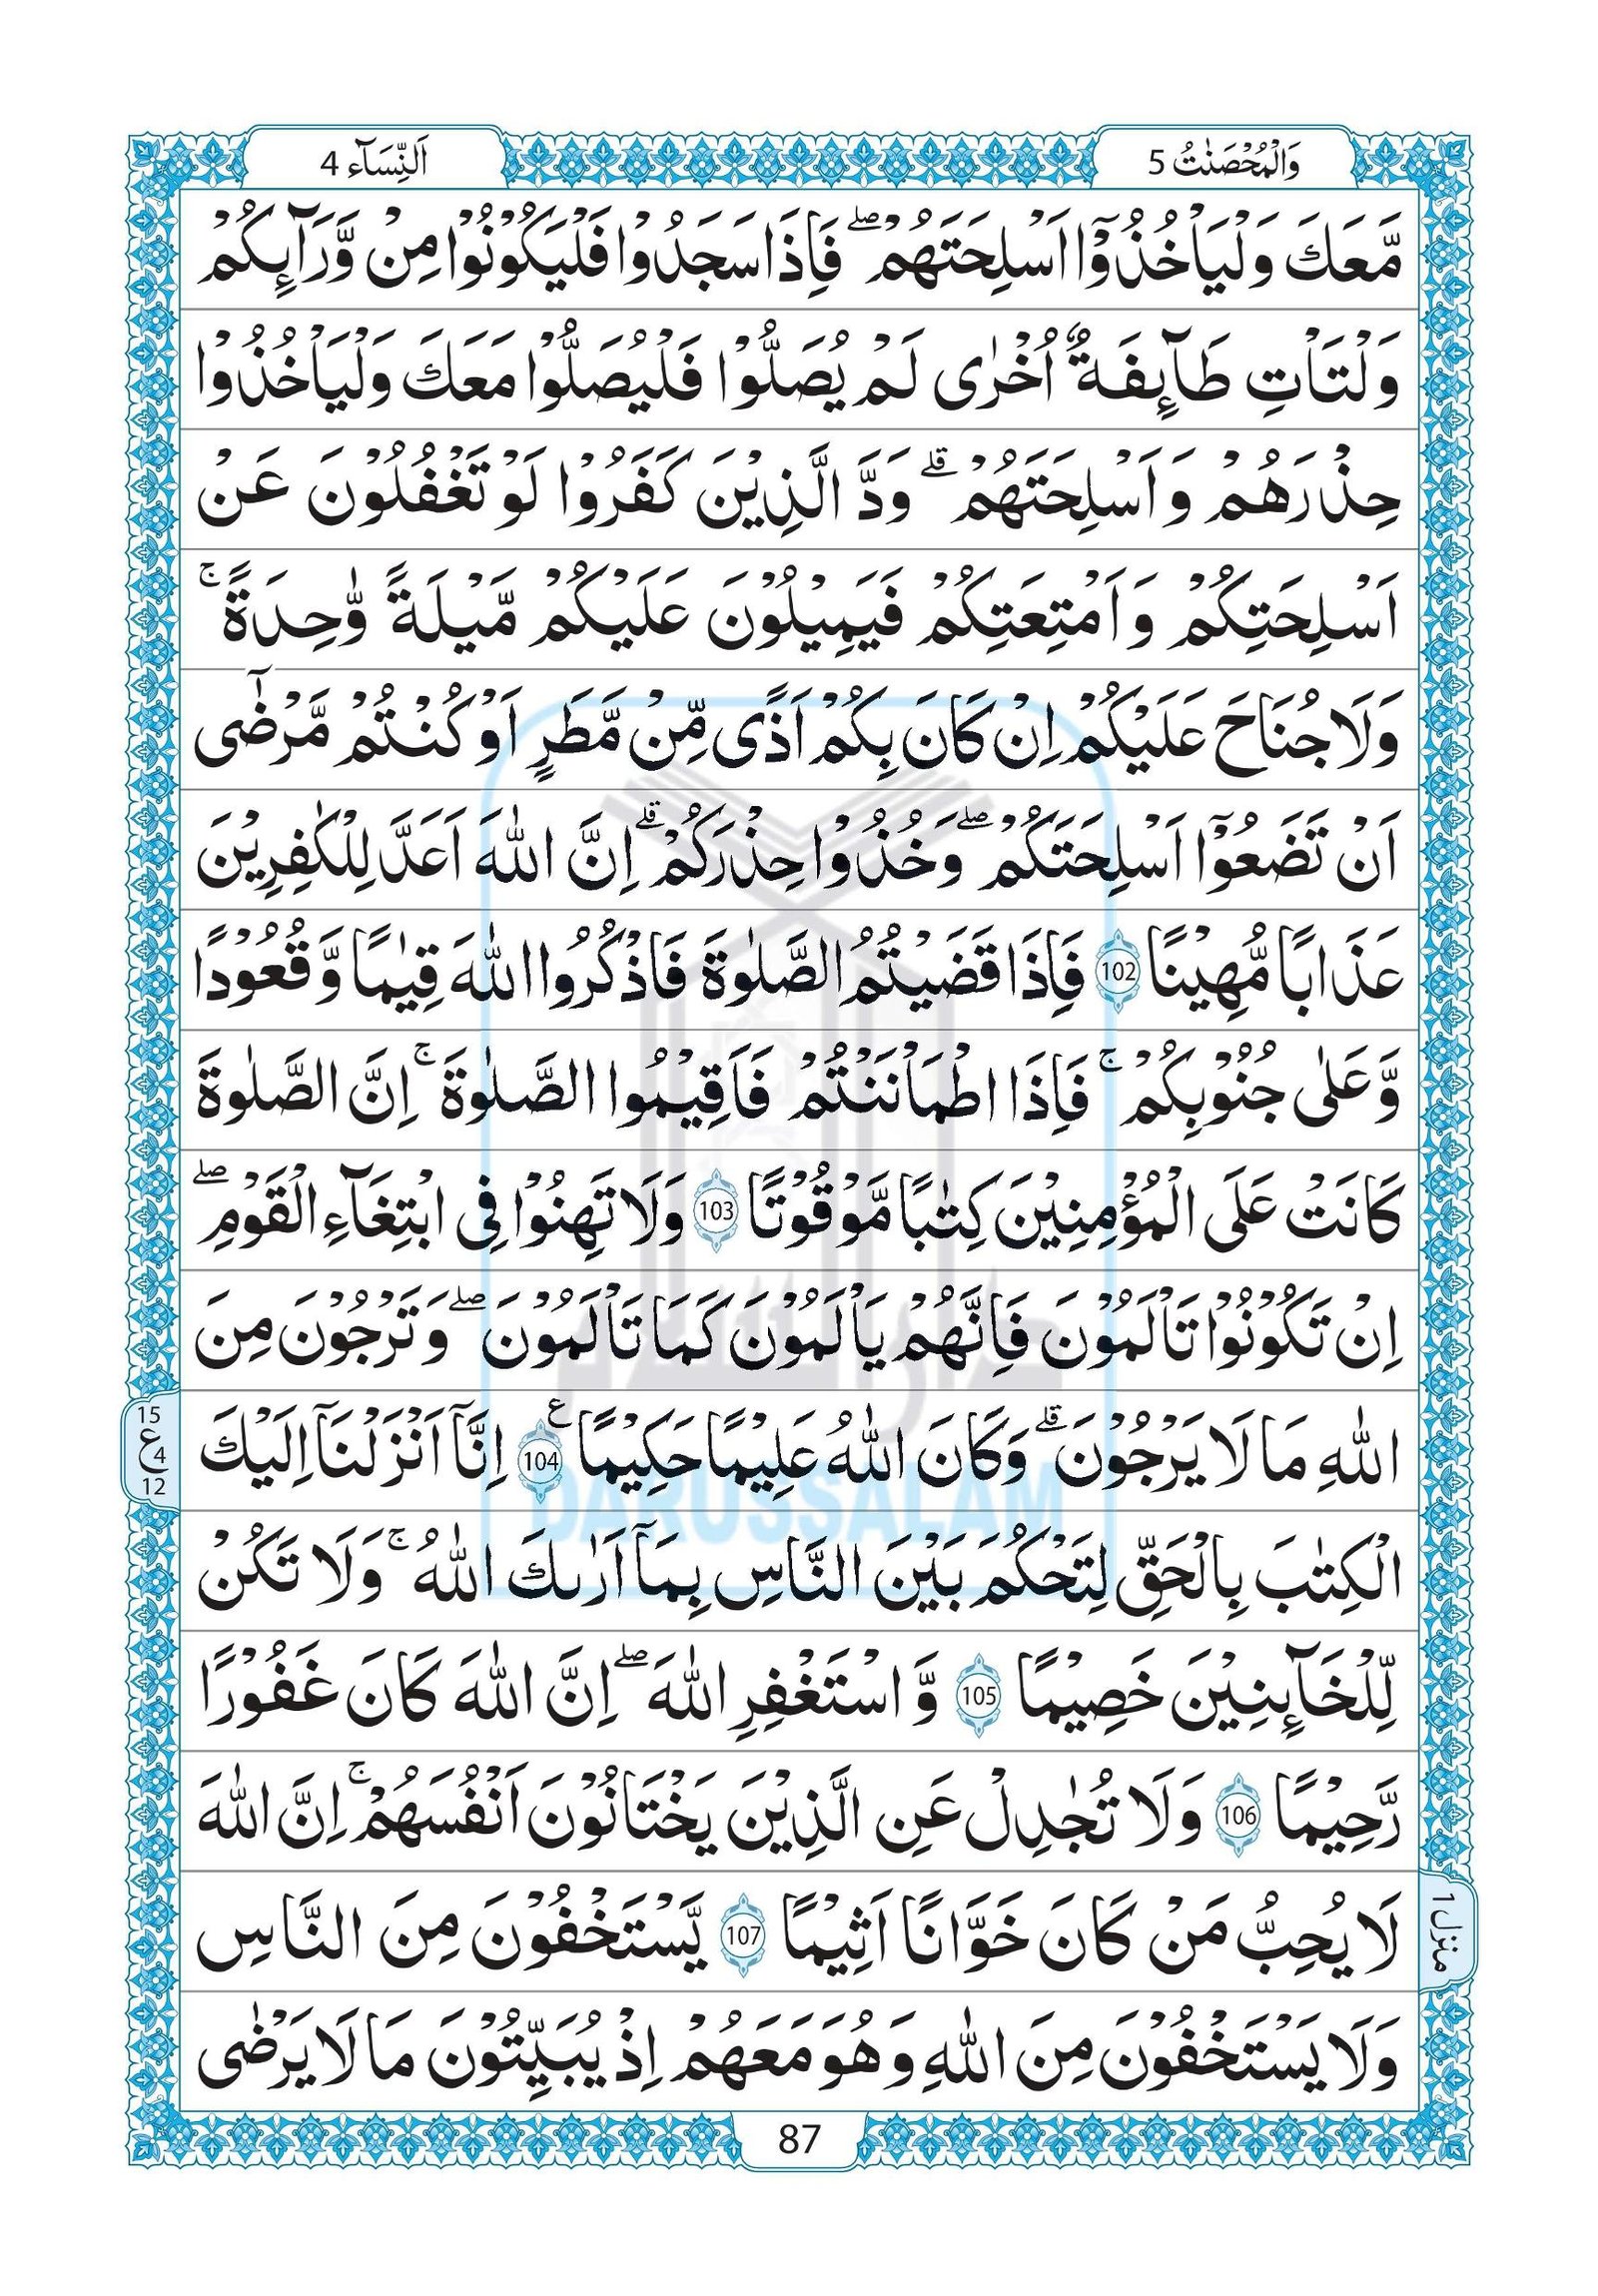 وَالْمُحْصَنٰتُ 5
اَلنِّسَآء 4
مَّعَكَ وَلْيَاْخُذُوْٓا اَسْلِحَتَهُمْ ۖ فَاِذَا سَجَدُوْا فَلْيَكُوْنُوْا مِنْ وَّرَآىِٕكُمْ
وَلْتَاْتِ طَآىِٕفَةٌ اُخْرٰى لَمْ يُصَلُّوْا فَلْيُصَلُّوْا مَعَكَ وَلْيَاْخُذُوْا
حِذْرَهُمْ وَاَسْلِحَتَهُمْ ۗ وَدَّ الَّذِيْنَ كَفَرُوْا لَوْ تَغْفُلُوْنَ عَنْ
اَسْلِحَتِكُمْ وَاَمْتِعَتِكُمْ فَيَمِيْلُوْنَ عَلَيْكُمْ مَّيْلَةً وَّٰحِدَةً ۚ
وَلَا جُنَاحَ عَلَيْكُمْ اِنْ كَانَ بِكُمْ اَذًى مِّنْ مَّطَرٍ اَوْ كُنْتُمْ مَّرْضٰٓى
اَنْ تَضَعُوْٓا اَسْلِحَتَكُمْ ۖ وَخُذُوْا حِذْرَكُمْ ۗ اِنَّ اللّٰهَ اَعَدَّ لِلْكٰفِرِيْنَ
عَذَابًا مُّهِيْنًا 102 فَاِذَا قَضَيْتُمُ الصَّلٰوةَ فَاذْكُرُوا اللّٰهَ قِيٰمًا وَّقُعُوْدًا
وَّعَلٰى جُنُوْبِكُمْ ۚ فَاِذَا اطْمَاْنَنْتُمْ فَاَقِيْمُوا الصَّلٰوةَ ۚ اِنَّ الصَّلٰوةَ
كَانَتْ عَلَى الْمُؤْمِنِيْنَ كِتٰبًا مَّوْقُوْتًا 103 وَلَا تَهِنُوْا فِى ابْتِغَآءِ الْقَوْمِ ۖ
اِنْ تَكُوْنُوْا تَاْلَمُوْنَ فَاِنَّهُمْ يَاْلَمُوْنَ كَمَا تَاْلَمُوْنَ ۖ وَتَرْجُوْنَ مِنَ
اللّٰهِ مَا لَا يَرْجُوْنَ ۗ وَكَانَ اللّٰهُ عَلِيْمًا حَكِيْمًا ع 104 اِنَّآ اَنْزَلْنَآ اِلَيْكَ
15
ع 4
12
DARUSSALAM
الْكِتٰبَ بِالْحَقِّ لِتَحْكُمَ بَيْنَ النَّاسِ بِمَآ اَرٰىكَ اللّٰهُ ۚ وَلَا تَكُنْ
لِّلْخَآىِٕنِيْنَ خَصِيْمًا 105 وَّاسْتَغْفِرِ اللّٰهَ ۖ اِنَّ اللّٰهَ كَانَ غَفُوْرًا
رَّحِيْمًا 106 وَلَا تُجٰدِلْ عَنِ الَّذِيْنَ يَخْتَانُوْنَ اَنْفُسَهُمْ ۚ اِنَّ اللّٰهَ
لَا يُحِبُّ مَنْ كَانَ خَوَّانًا اَثِيْمًا 107 يَّسْتَخْفُوْنَ مِنَ النَّاسِ
منزل ۱
وَلَا يَسْتَخْفُوْنَ مِنَ اللّٰهِ وَهُوَ مَعَهُمْ اِذْ يُبَيِّتُوْنَ مَا لَا يَرْضٰى
87